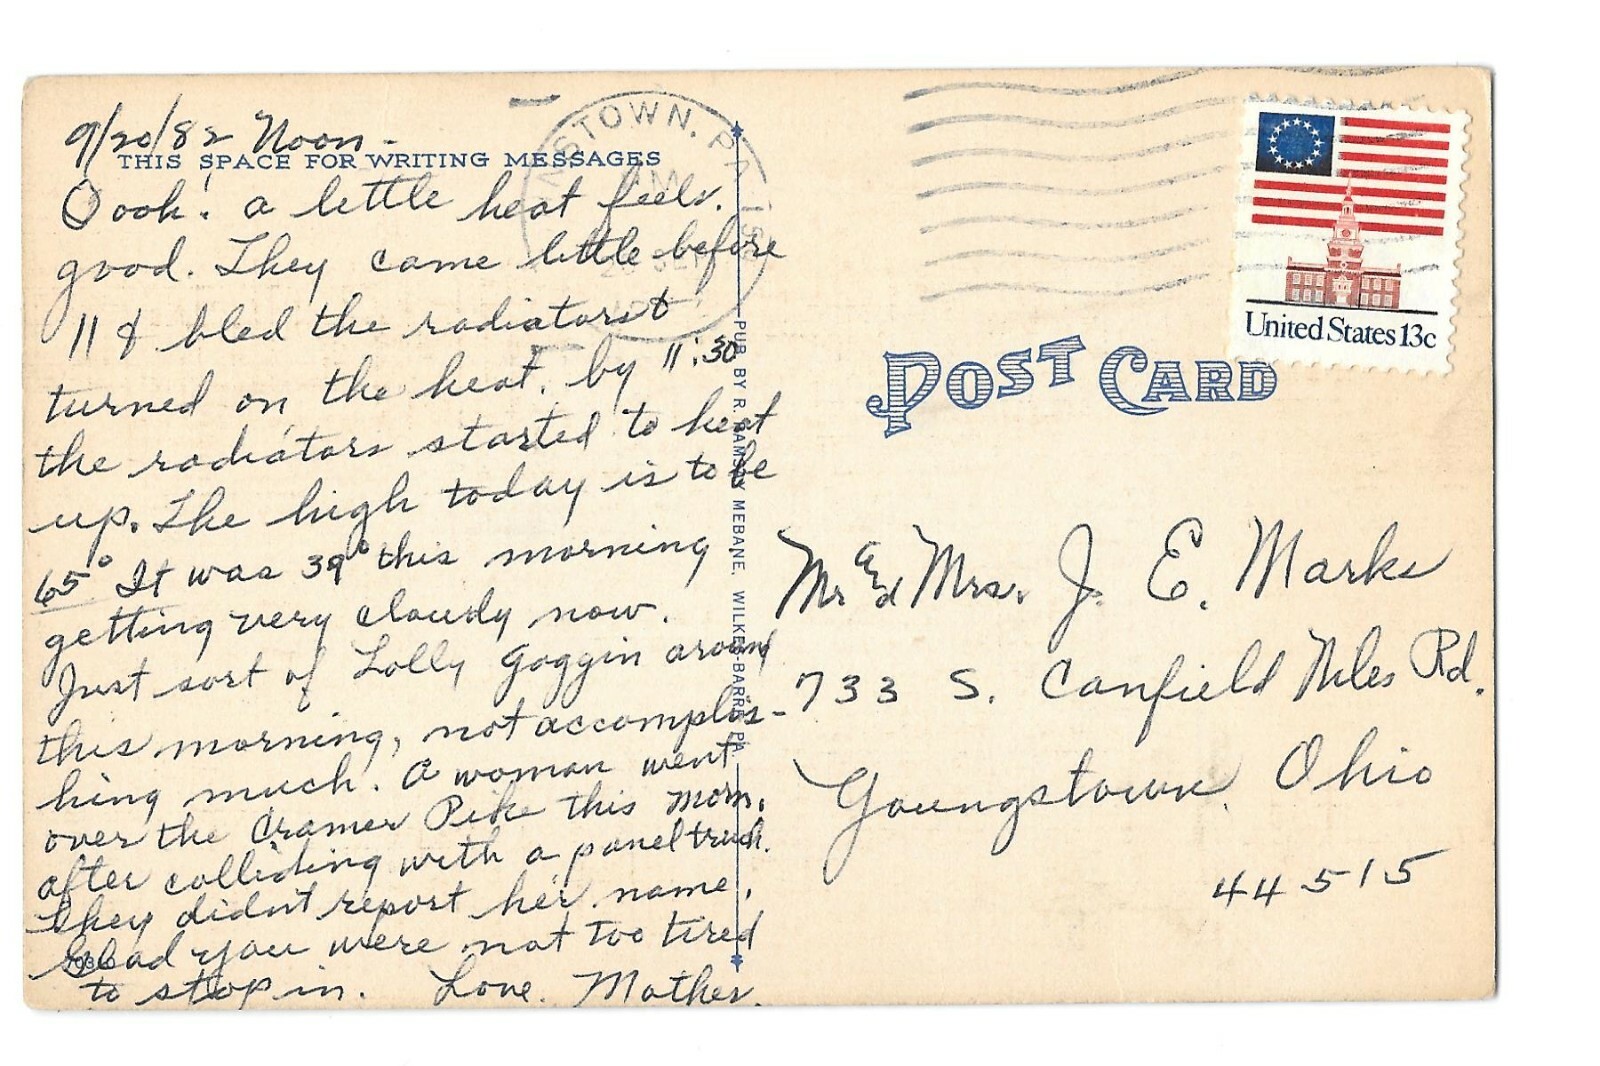 9/20/82 Noon -
THIS SPACE FOR WRITING MESSAGES
Oooh! a little heat feels
good. They came little before
11 & bled the radiators &
turned on the heat. by 11:30
the radiators started to heat
up. The high today is to be
65° It was 39° this morning
getting very cloudy now.
Just sort of Lolly Goggin around
this morning, not accomplis-
hing much. A woman went
over the Cramer Pike this morn.
after colliding with a panel truck.
They didn't report her name.
Glad you were not too tired
to stop in. Love. Mother.
NSTOWN, PA 159
PUB. BY R. RAMSAY MEBANE, WILKES-BARRE, PA.
United States 13c
POST CARD
Mr and Mrs. J. E. Marks
733 S. Canfield Niles Rd.
Youngstown, Ohio
44515